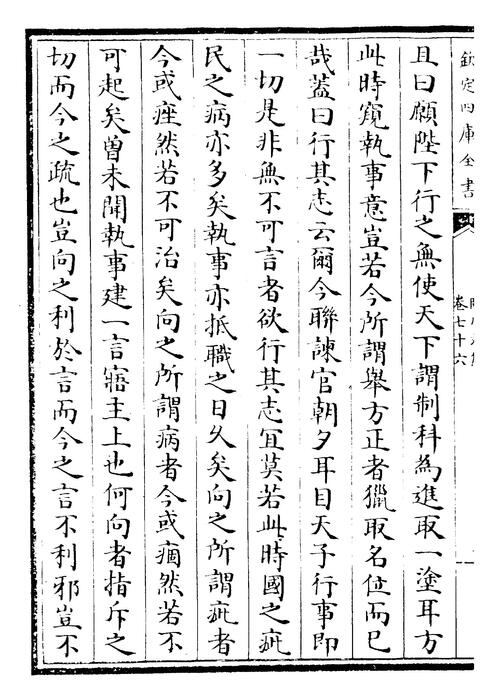 欽定四庫全書
卷七十六
且曰願陛下行之無使天下謂制科為進取一塗耳方
此時窺執事意豈若今所謂舉方正者獵取名位而已
哉蓋曰行其志云爾今聯諫官朝夕耳目天子行事即
一切是非無不可言者欲行其志宜莫若此時國之疵
民之病亦多矣執事亦抵職之日久矣向之所謂疵者
今或痤然若不可治矣向之所謂病者今或痼然若不
可起矣曾未聞執事建一言寤主上也何向者指斥之
切而今之疏也豈向之利於言而今之言不利邪豈不